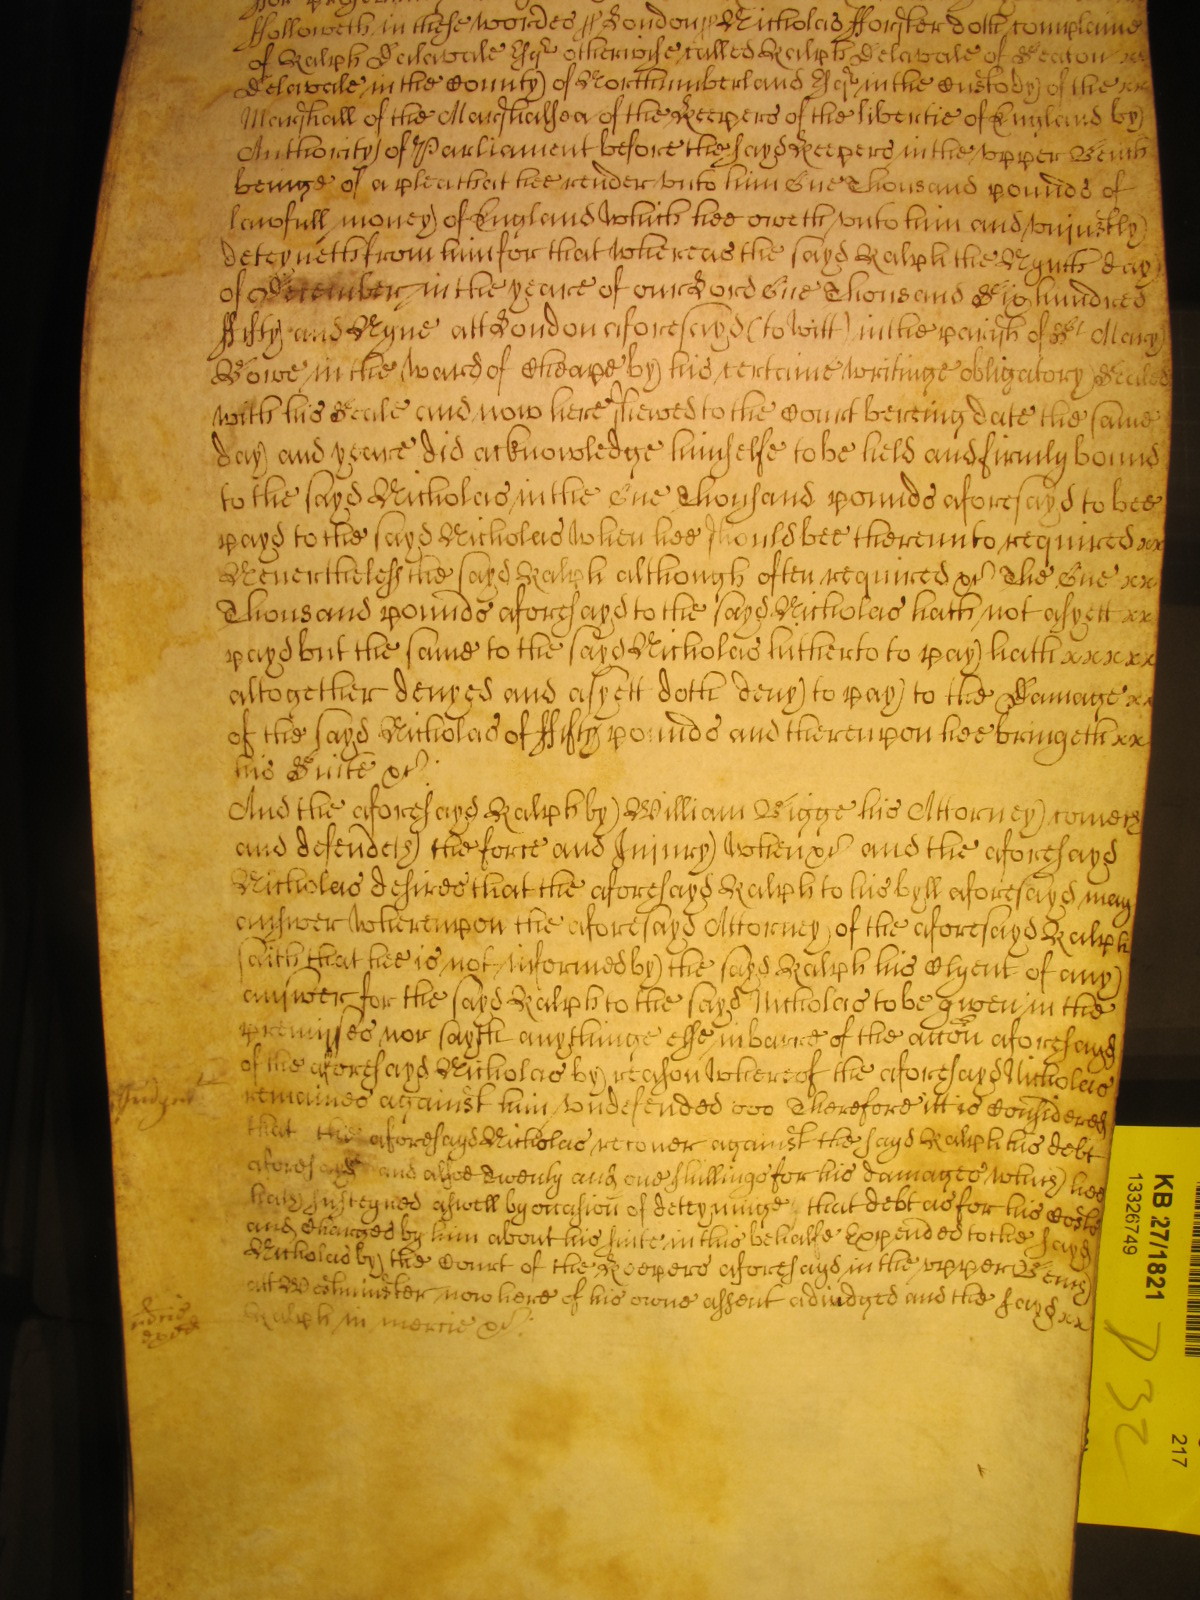 ffolloweth in these wordes ss London ss Nicholas fforster doth complaine
of Ralph Delavale Esqr otherwise called Ralph Delavale of Seaton xx
Delavale in the County of Northumberland Esqr in the Custody of the xx
Marshall of the Marshalsea of the Keepers of the libertie of England by
Authority of Parliament before the sayd Keepers in the vpper Bench
beinge of a plea that hee render vnto him One Thousand pounds of
lawfull money of England which hee oweth vnto him and vniustly
deteyneth from him for that whereas the sayd Ralph the Nynth day
of December in the yeare of our Lord One Thousand Six hundred
ffifty and Nyne att London aforesayd (to witt) in the parish of St Mary
Bowe in the ward of Cheape by his certaine writinge obligatory Sealed
with his Seale and now here shewed to the Court bereing date the same
day and yeare did acknowledge himselfe to be held and firmly bound
to the sayd Nicholas in the One Thousand pounds aforesayd to bee
payd to the sayd Nicholas when hee should bee therevnto required xx
Neuertheless the sayd Ralph although often required &c The One xx
Thousand pounds aforesayd to the sayd Nicholas hath not as yett xx
payd but the same to the sayd Nicholas hitherto to pay hath xxxxx
altogether denyed and as yett doth deny to pay to the Damage xx
of the sayd Nicholas of ffifty pounds and therevpon hee bringeth xx
his Suite &c.
And the aforesayd Ralph by William Bigge his Attorney comes
and defendes the force and Iniury when &c and the aforesayd
Nicholas desires that the aforesayd Ralph to his byll aforesayd may
answer wherevpon the aforesayd Attorney of the aforesayd Ralph
saith that hee is not informed by the sayd Ralph his Clyent of any
answer for the sayd Ralph to the sayd Nicholas to be given in the
premisses nor sayth any thinge else in barre of the accon aforesayd
of the aforesayd Nicholas by reason whereof the aforesayd Nicholas
remaines against him vndefended ooo Therefore itt is Considered
that the aforesayd Nicholas recouer against the sayd Ralph his debt
aforesayd and alsoe Twenty and one shillings for his damages which hee
hath susteyned aswell by occasion of deteyninge that debt as for his Costs
and Charges by him about his suite in this behalfe Expended to the sayd
Nicholas by the Court of the Keepers aforesayd in the vpper Bench
att Westminster now here of his owne assent adiudged and the sayd xx
Ralph in mercie &c.
Judgmt
KB 27/1821
13326749
217
P 32